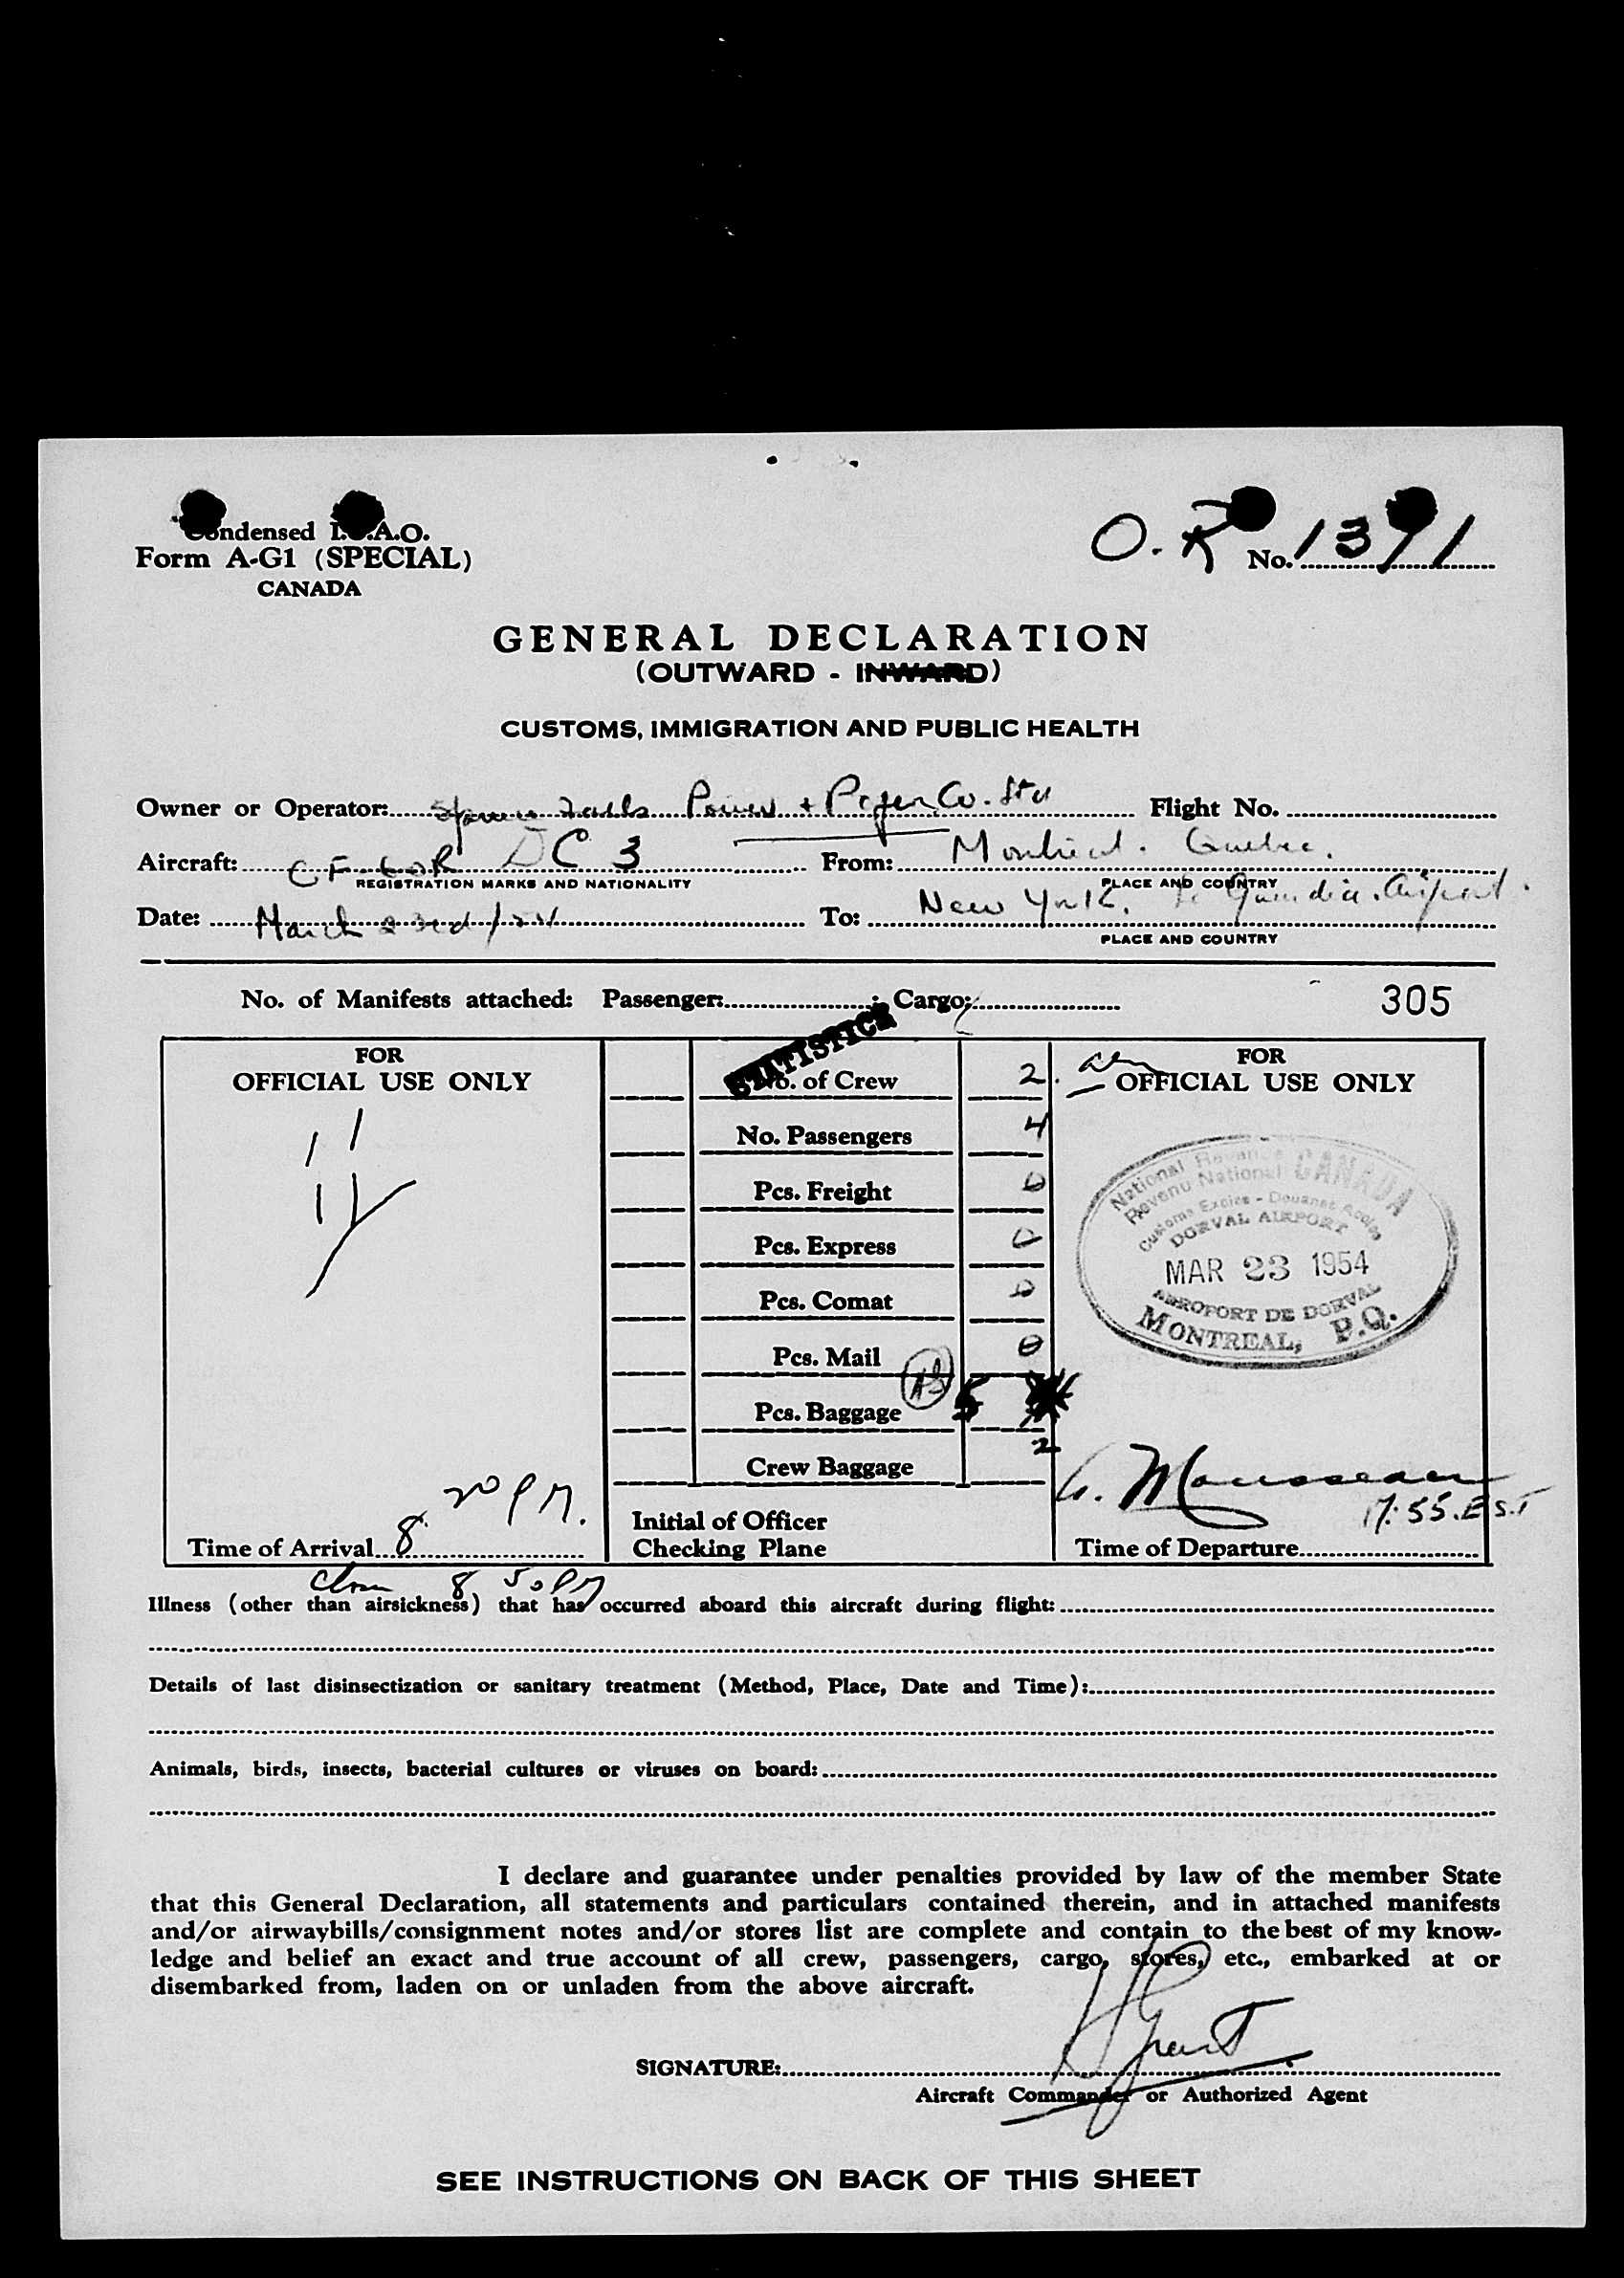 Condensed I.C.A.O.
Form A-G1 (SPECIAL)
CANADA
O.R No. 1391
GENERAL DECLARATION
(OUTWARD - INWARD)
CUSTOMS, IMMIGRATION AND PUBLIC HEALTH
Owner or Operator: Spruce Falls Power + Paper Co. Ltd Flight No.
Aircraft: DC 3 From: Montreal. Quebec.
REGISTRATION MARKS AND NATIONALITY PLACE AND COUNTRY
Date: March 23rd/54 To: New York. La Guardia. Airport.
PLACE AND COUNTRY
No. of Manifests attached: Passenger: ; Cargo: 305
STATISTICS
FOR
OFFICIAL USE ONLY
11
Time of Arrival 8 20 PM.
No. of Crew 2
No. Passengers 4
Pcs. Freight 0
Pcs. Express 0
Pcs. Comat 0
Pcs. Mail 0
Pcs. Baggage 5
Crew Baggage 2
Initial of Officer
Checking Plane
FOR
OFFICIAL USE ONLY
National Revenue CANADA
Revenu National
Customs Excise - Douanes Accise
DORVAL AIRPORT
MAR 23 1954
AEROPORT DE DORVAL
MONTREAL, P.Q.
G. Mousseau
17:55.E.S.T
Time of Departure
8 50 PM
Illness (other than airsickness) that has occurred aboard this aircraft during flight:
Details of last disinsectization or sanitary treatment (Method, Place, Date and Time):
Animals, birds, insects, bacterial cultures or viruses on board:
I declare and guarantee under penalties provided by law of the member State
that this General Declaration, all statements and particulars contained therein, and in attached manifests
and/or airwaybills/consignment notes and/or stores list are complete and contain to the best of my know-
ledge and belief an exact and true account of all crew, passengers, cargo, stores, etc., embarked at or
disembarked from, laden on or unladen from the above aircraft.
SIGNATURE: Grant
Aircraft Commander or Authorized Agent
SEE INSTRUCTIONS ON BACK OF THIS SHEET